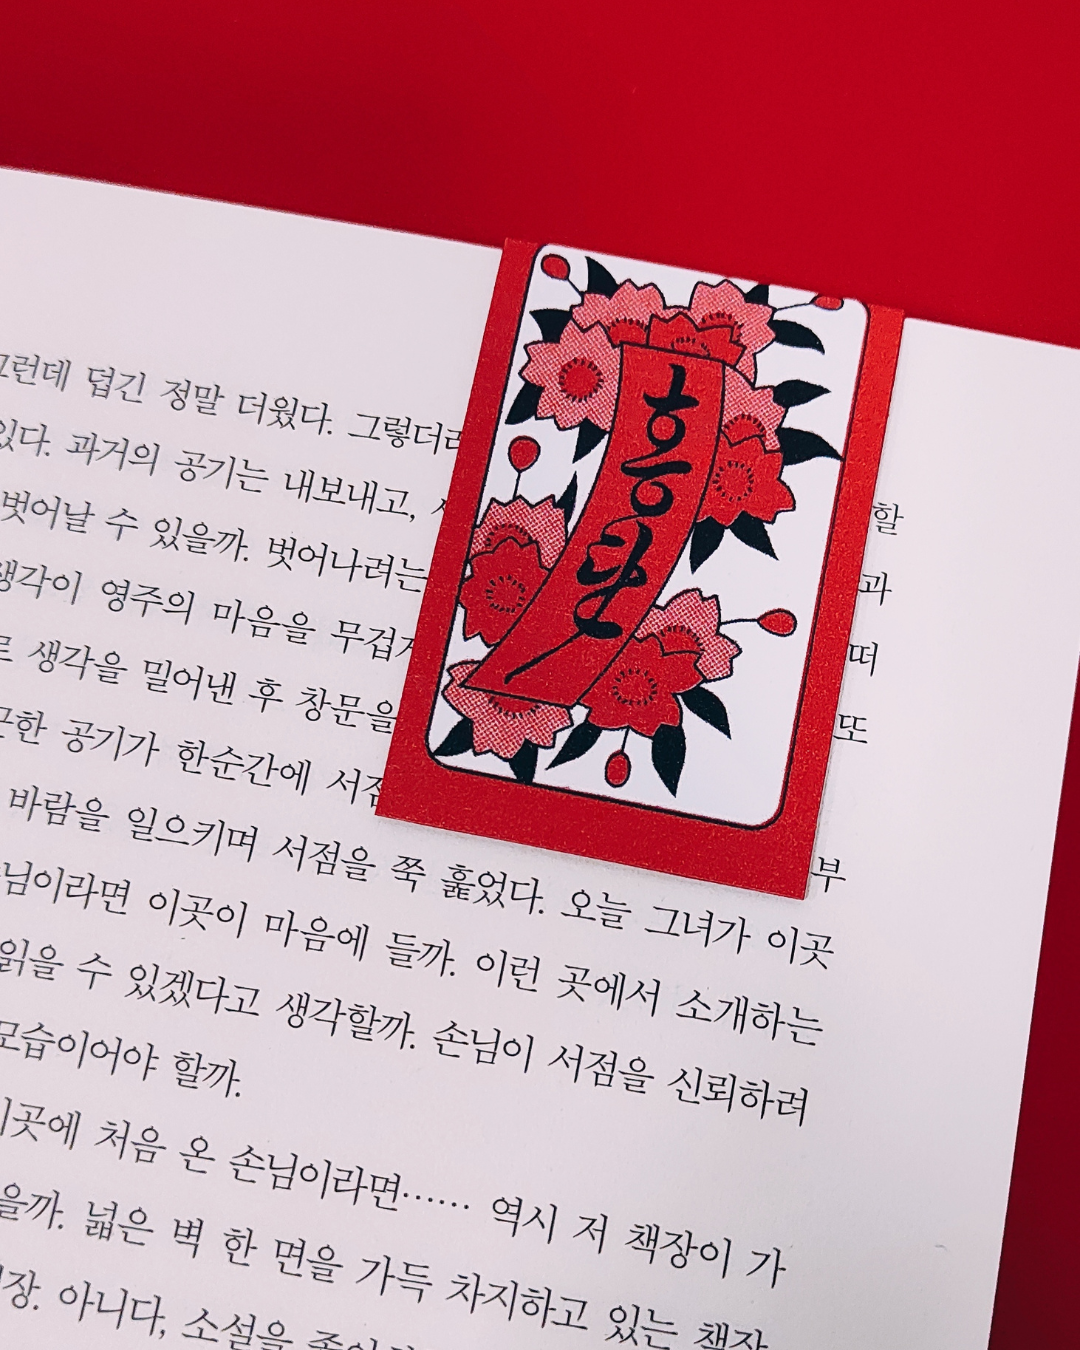 흥단
그런데 덥긴 정말 더웠다. 그렇더라
있다. 과거의 공기는 내보내고, 할
벗어날 수 있을까. 벗어나려는 과
생각이 영주의 마음을 무겁게 떠
로 생각을 밀어낸 후 창문을 또
근한 공기가 한순간에 서점
바람을 일으키며 서점을 쭉 훑었다. 오늘 그녀가 이곳 부
손님이라면 이곳이 마음에 들까. 이런 곳에서 소개하는
읽을 수 있겠다고 생각할까. 손님이 서점을 신뢰하려
모습이어야 할까.
이곳에 처음 온 손님이라면…… 역시 저 책장이 가
을까. 넓은 벽 한 면을 가득 차지하고 있는 책장
장. 아니다, 소설을